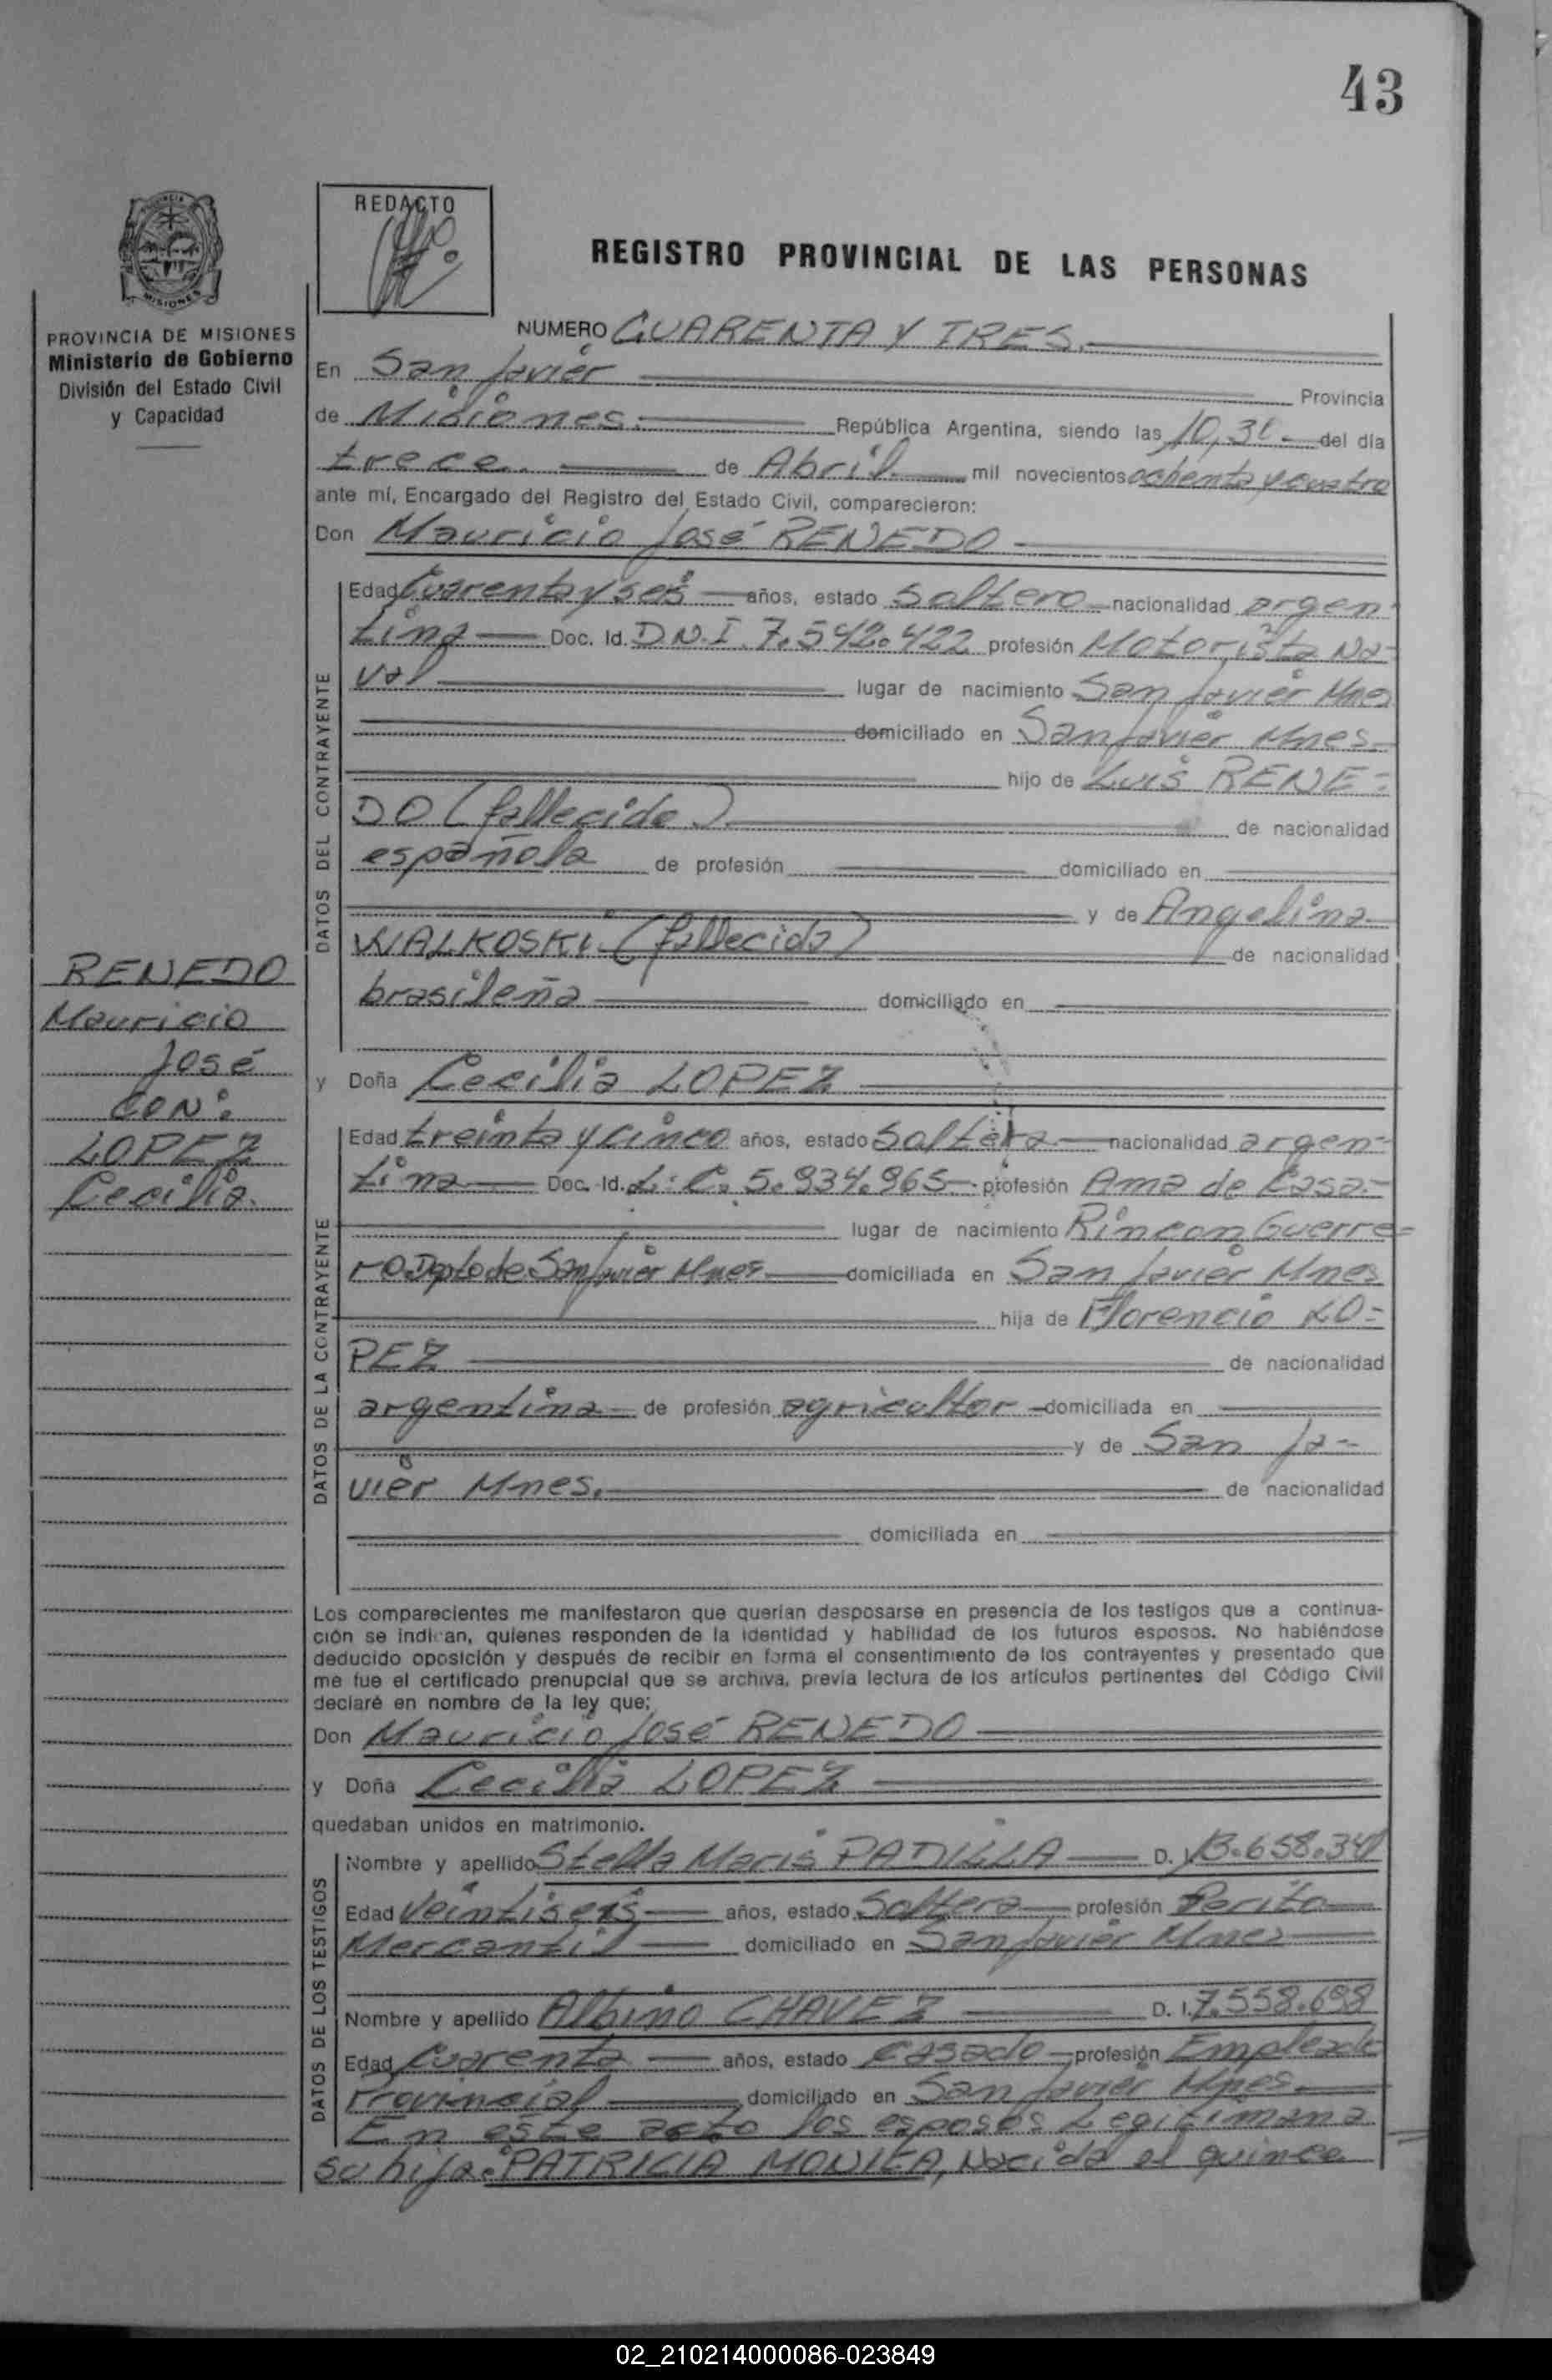 43
REDACTO
REGISTRO PROVINCIAL DE LAS PERSONAS
MISIONES
PROVINCIA DE MISIONES
Ministerio de Gobierno
División del Estado Civil
y Capacidad
NUMERO CUARENTA Y TRES.
En San Javier Provincia
de Misiones. República Argentina, siendo las 10,30 del día
trece. de Abril mil novecientos ochenta y cuatro
ante mí, Encargado del Registro del Estado Civil, comparecieron:
Don Mauricio José RENEDO
DATOS DEL CONTRAYENTE
Edad Cuarenta y seis años, estado Soltero nacionalidad argen-
tina Doc. Id. D.N.I. 7.542.422 profesión Motorista Na-
val lugar de nacimiento San Javier Mnes
domiciliado en San Javier Mnes-
hijo de Luis RENE-
DO (fallecido). de nacionalidad
española de profesión domiciliado en
y de Angelina
WALKOSKI. (fallecida) de nacionalidad
brasileña domiciliado en
RENEDO
Mauricio
José
CON:
LOPEZ
Cecilia.
y Doña Cecilia LOPEZ
DATOS DE LA CONTRAYENTE
Edad treinta y cinco años, estado Soltera nacionalidad argen-
tina Doc. Id. L.C. 5.934.965 profesión Ama de Casa.-
lugar de nacimiento Rincon Guerre-
ro Dpto de San Javier Mnes domiciliada en San Javier Mnes
hija de Florencio LO-
PEZ de nacionalidad
argentina de profesión agricultor domiciliada en
y de San Ja-
vier Mnes. de nacionalidad
domiciliada en
Los comparecientes me manifestaron que querían desposarse en presencia de los testigos que a continua-
ción se indican, quienes responden de la identidad y habilidad de los futuros esposos. No habiéndose
deducido oposición y después de recibir en forma el consentimiento de los contrayentes y presentado que
me fue el certificado prenupcial que se archiva, previa lectura de los artículos pertinentes del Código Civil
declaré en nombre de la ley que;
Don Mauricio José RENEDO
y Doña Cecilia LOPEZ
quedaban unidos en matrimonio.
DATOS DE LOS TESTIGOS
Nombre y apellido Stella Maris PADILLA D. I. 13.658.341
Edad Veintiseis años, estado Soltera profesión Perito
Mercantil domiciliado en San Javier Mnes
Nombre y apellido Albino CHAVEZ D. I. 7.558.698
Edad Cuarenta años, estado Casado profesión Empleado
Provincial domiciliado en San Javier Mnes.
En este acto los esposos Legitiman a
su hija: PATRICIA MONICA, Nacida el quince
02_210214000086-023849